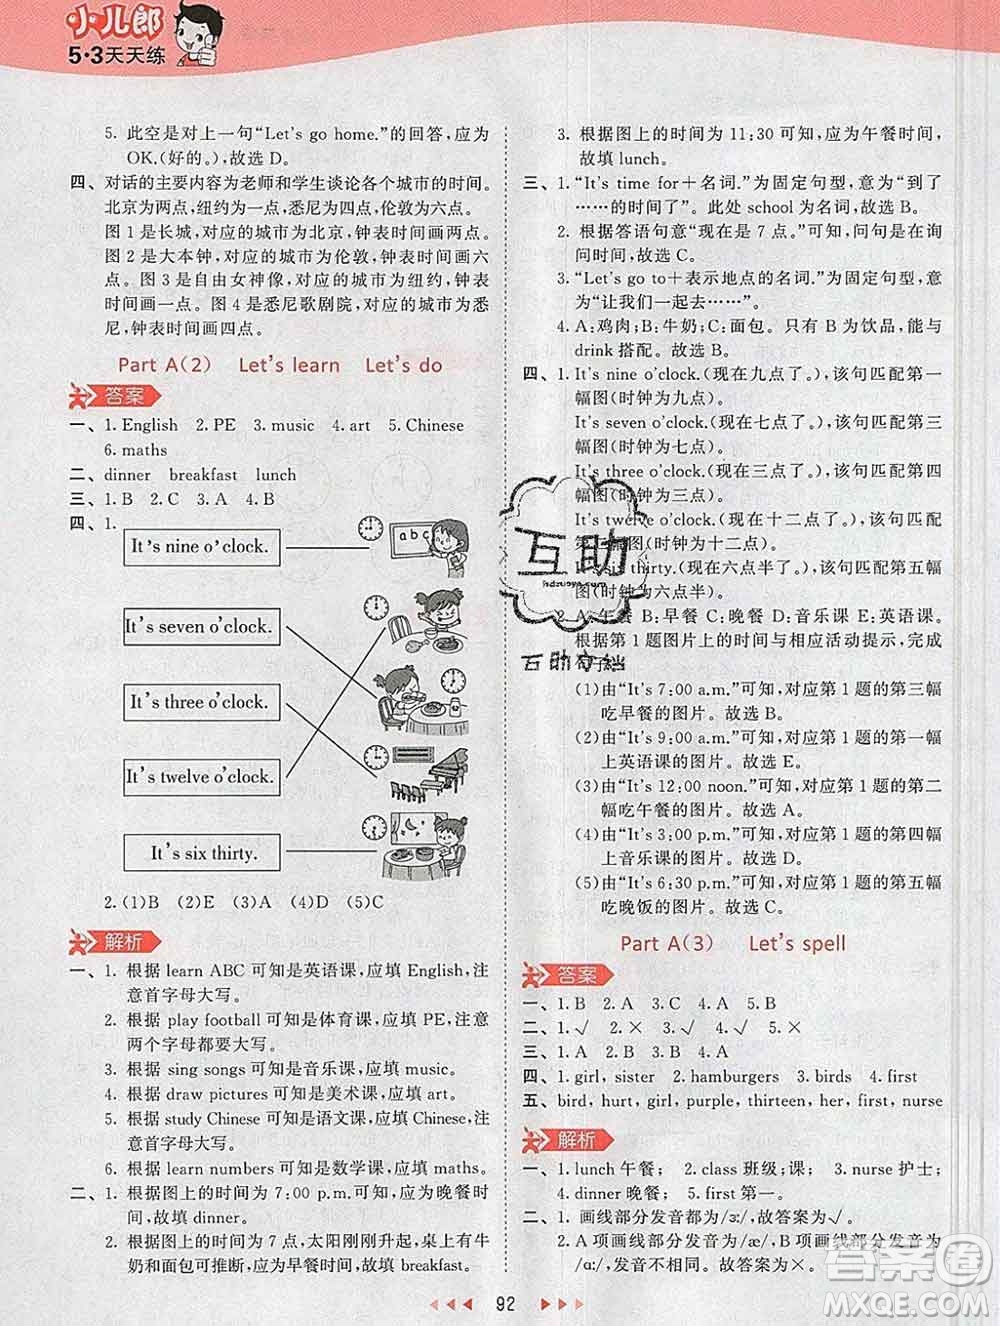 小儿郎
5·3天天练
5. 此空是对上一句“Let's go home.”的回答,应为
OK.(好的。),故选 D。
四、对话的主要内容为老师和学生谈论各个城市的时间。
北京为两点,纽约为一点,悉尼为四点,伦敦为六点。
图 1 是长城,对应的城市为北京,钟表时间画两点。
图 2 是大本钟,对应的城市为伦敦,钟表时间画六
点。图 3 是自由女神像,对应的城市为纽约,钟表时
间画一点。图 4 是悉尼歌剧院,对应的城市为悉
尼,钟表时间画四点。
Part A(2) Let's learn Let's do
答案
一、1. English 2. PE 3. music 4. art 5. Chinese
6. maths
二、dinner breakfast lunch
三、1. B 2. C 3. A 4. B
四、1.
It's nine o'clock.
abc
It's seven o'clock.
It's three o'clock.
It's twelve o'clock.
It's six thirty.
2. (1)B (2)E (3)A (4)D (5)C
解析
一、1. 根据 learn ABC 可知是英语课,应填 English,注
意首字母大写。
2. 根据 play football 可知是体育课,应填 PE,注意
两个字母都要大写。
3. 根据 sing songs 可知是音乐课,应填 music。
4. 根据 draw pictures 可知是美术课,应填 art。
5. 根据 study Chinese 可知是语文课,应填 Chinese,
注意首字母大写。
6. 根据 learn numbers 可知是数学课,应填 maths。
二、1. 根据图上的时间为 7:00 p.m.可知,应为晚餐时
间,故填 dinner。
2. 根据图上的时间为 7 点,太阳刚刚升起,桌上有牛
奶和面包可推断,应为早餐时间,故填 breakfast。
3. 根据图上的时间为 11:30 可知,应为午餐时间,
故填 lunch。
三、1. “It's time for+名词.”为固定句型,意为“到了
……的时间了”。此处 school 为名词,故选 A。
2. 根据答语句意“现在是 7 点。”可知,问句是在询
问时间,故选 C。
3. “Let's go to+表示地点的名词.”为固定句型,意
为“让我们一起去……”。
4. A:鸡肉;B:牛奶;C:面包。只有 B 为饮品,能与
drink 搭配。故选 B。
四、1. It's nine o'clock.(现在九点了。),该句匹配第一
幅图(时钟为九点)。
It's seven o'clock.(现在七点了。),该句匹配第三
幅图(时钟为七点)。
It's three o'clock.(现在三点了。),该句匹配第四
幅图(时钟为三点)。
It's twelve o'clock.(现在十二点了。),该句匹配
第二幅图(时钟为十二点)。
It's six thirty.(现在六点半了。),该句匹配第五幅
图(时钟为六点半)。
2. A:午餐 B:早餐 C:晚餐 D:音乐课 E:英语课。
根据第 1 题图片上的时间与相应活动提示,完成
句子
(1)由“It's 7:00 a.m.”可知,对应第 1 题的第三幅
吃早餐的图片。故选 B。
(2)由“It's 9:00 a.m.”可知,对应第 1 题的第一幅
上英语课的图片。故选 E。
(3)由“It's 12:00 noon.”可知,对应第 1 题的第二
幅吃午餐的图片。故选 A。
(4)由“It's 3:00 p.m.”可知,对应第 1 题的第四幅
上音乐课的图片。故选 D。
(5)由“It's 6:30 p.m.”可知,对应第 1 题的第五幅
吃晚饭的图片。故选 C。
Part A(3) Let's spell
答案
一、1. B 2. A 3. C 4. A 5. B
二、1. √ 2. × 3. × 4. √ 5. ×
三、1. A 2. B 3. B 4. A
四、1. girl, sister 2. hamburgers 3. birds 4. first
五、bird, hurt, girl, purple, thirteen, her, first, nurse
解析
一、1. lunch 午餐; 2. class 班级;课; 3. nurse 护士;
4. dinner 晚餐; 5. first 第一。
二、1. 画线部分发音都为/ɜː/,故答案为√。
2. A 项画线部分发音为/æ/,B项画线部分发音为
/ɑː/,发音不相同。故答案为×。
互助
hdzuoye.com
百助文档
答案圈
MXQE.COM
92